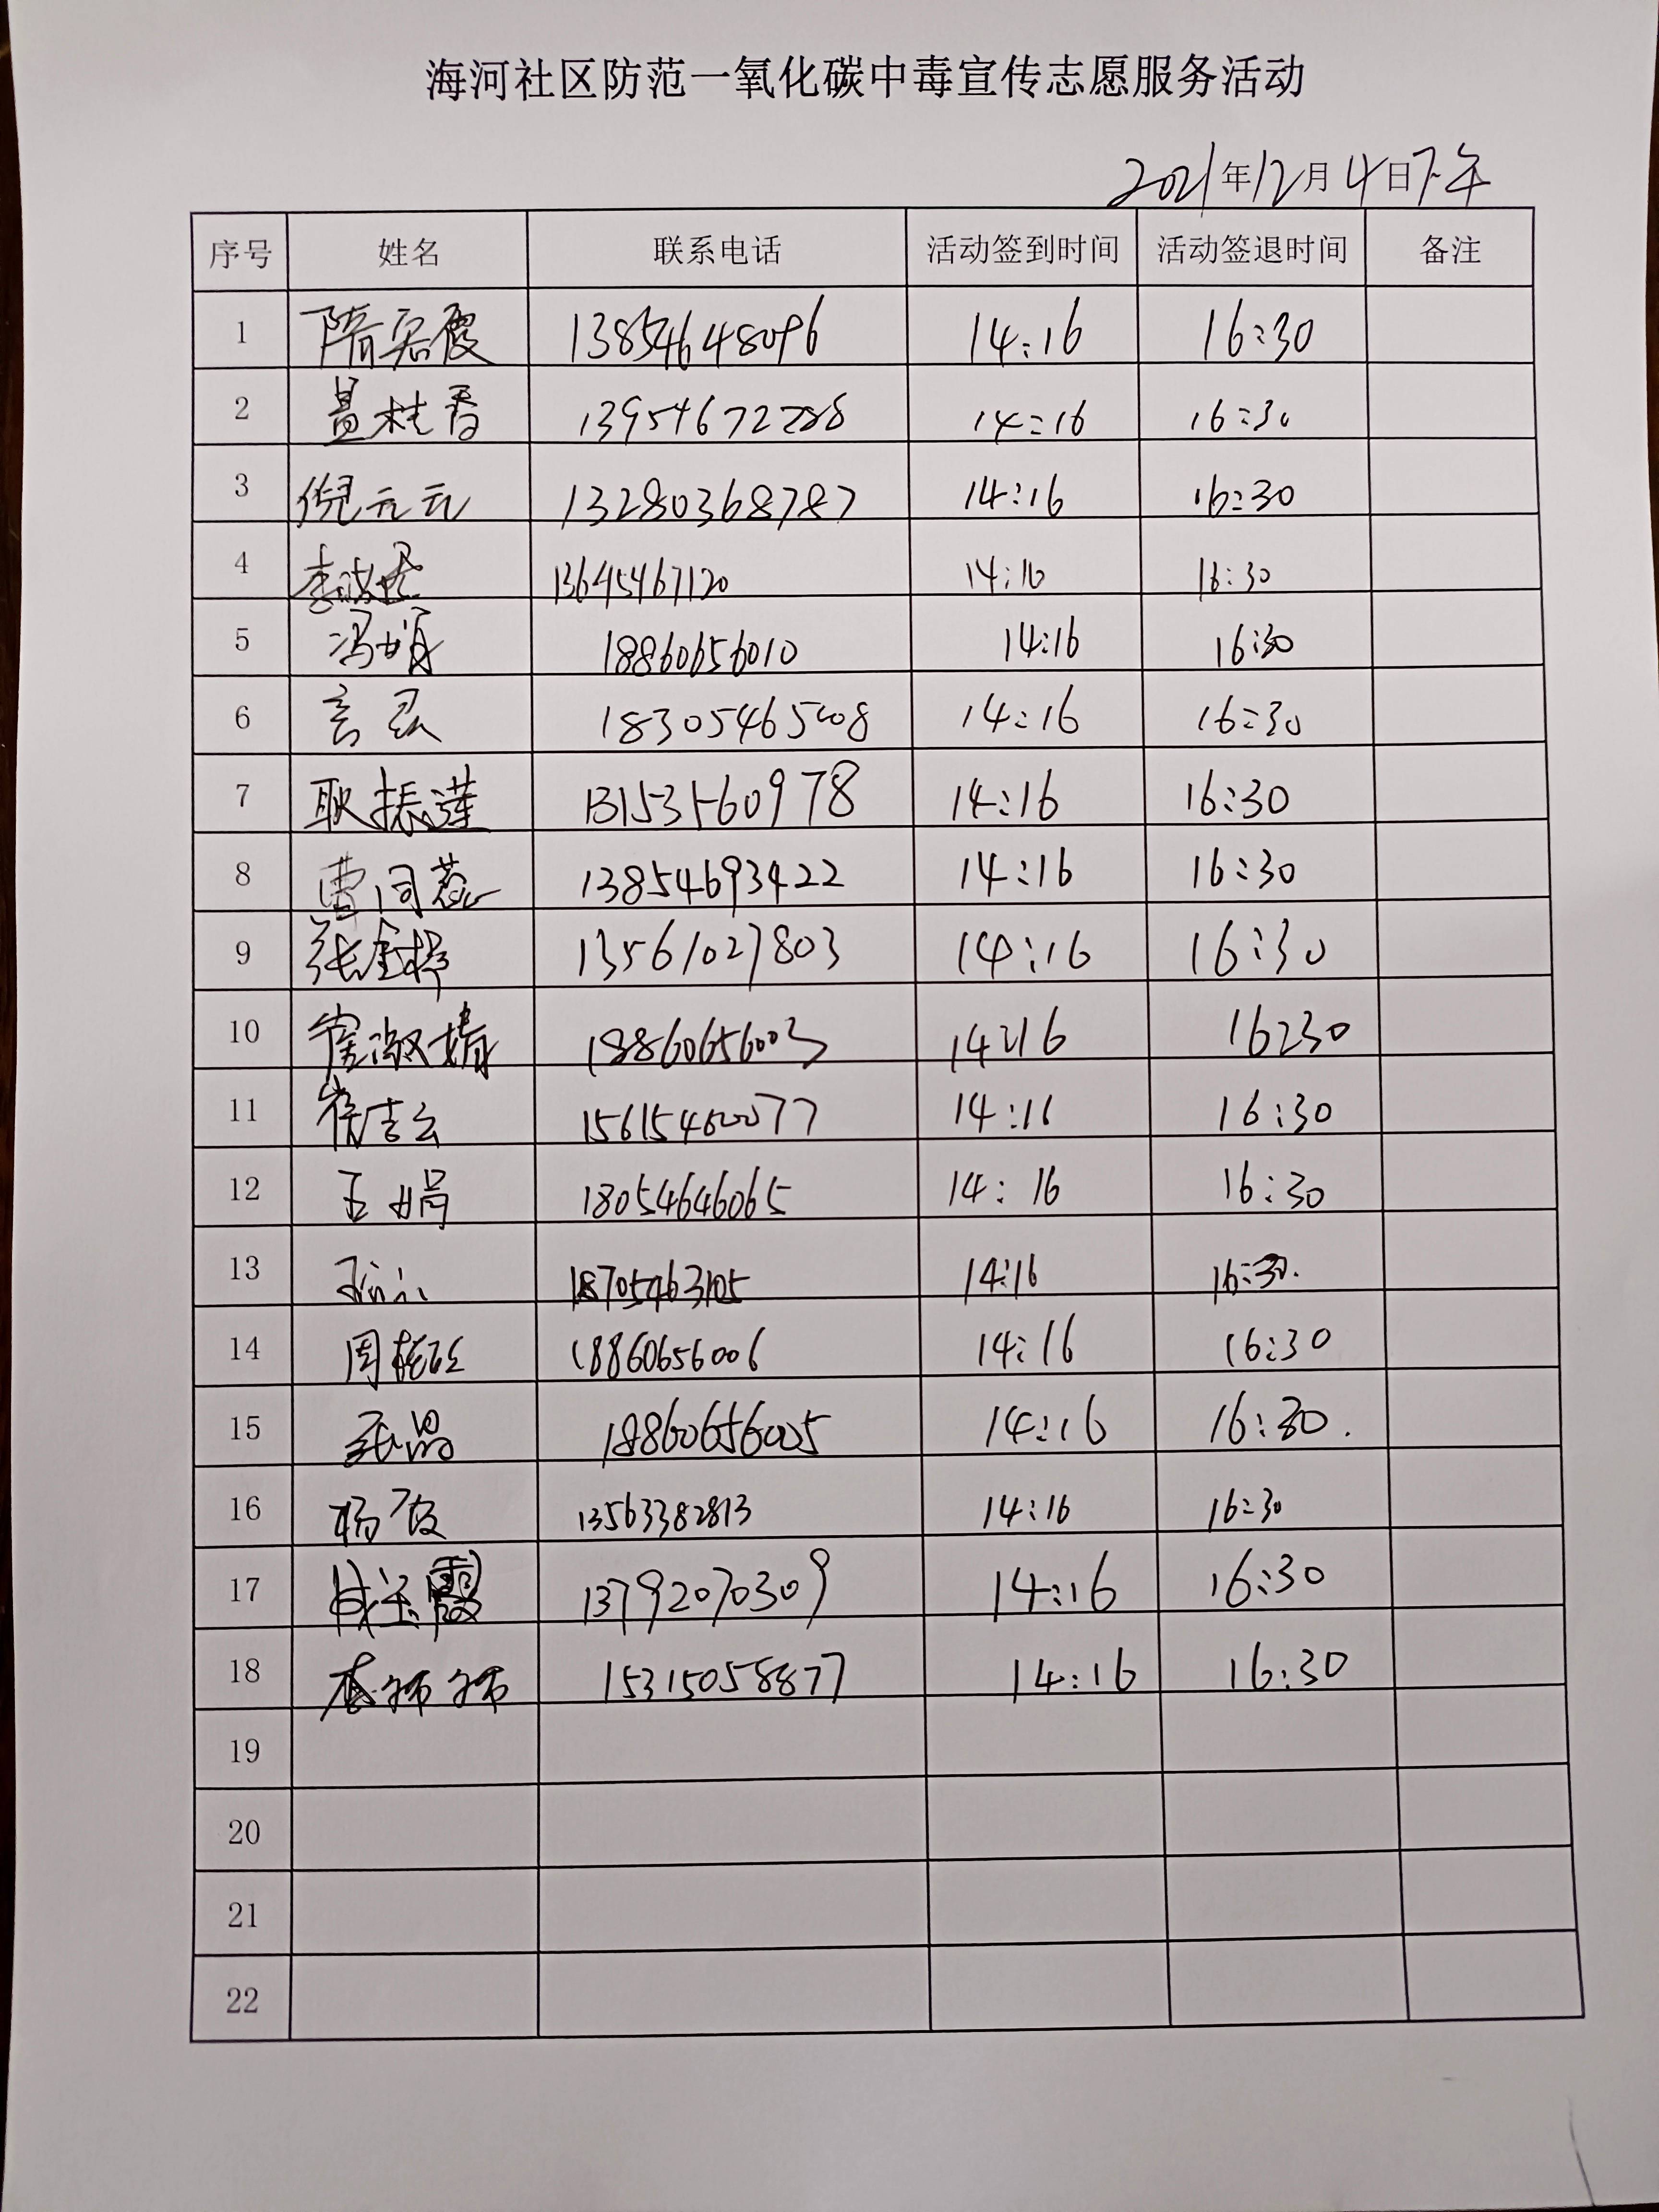 海河社区防范一氧化碳中毒宣传志愿服务活动
2021年12月4日下午
序号 姓名 联系电话 活动签到时间 活动签退时间 备注
1 隋召霞 13854648096 14:16 16:30
2 桂香 13954672288 14:16 16:30
3 倪元元 13280368787 14:16 16:30
4 李 13645467120 14:16 16:30
5 冯娟 18860656010 14:16 16:30
6 18305465008 14:16 16:30
7 耿振莲 13153560978 14:16 16:30
8 曹同蕊 13854693422 14:16 16:30
9 张金婷 13561027803 14:16 16:30
10 崔淑婧 18860656003 14:16 16:30
11 崔吉云 15615460077 14:16 16:30
12 王娟 18054646065 14:16 16:30
13 18705463105 14:16 16:30.
14 周 18860656006 14:16 16:30
15 18860656005 14:16 16:30.
16 杨 13563382813 14:16 16:30
17 成玉霞 13792070309 14:16 16:30
18 李师师 15315058877 14:16 16:30
19
20
21
22